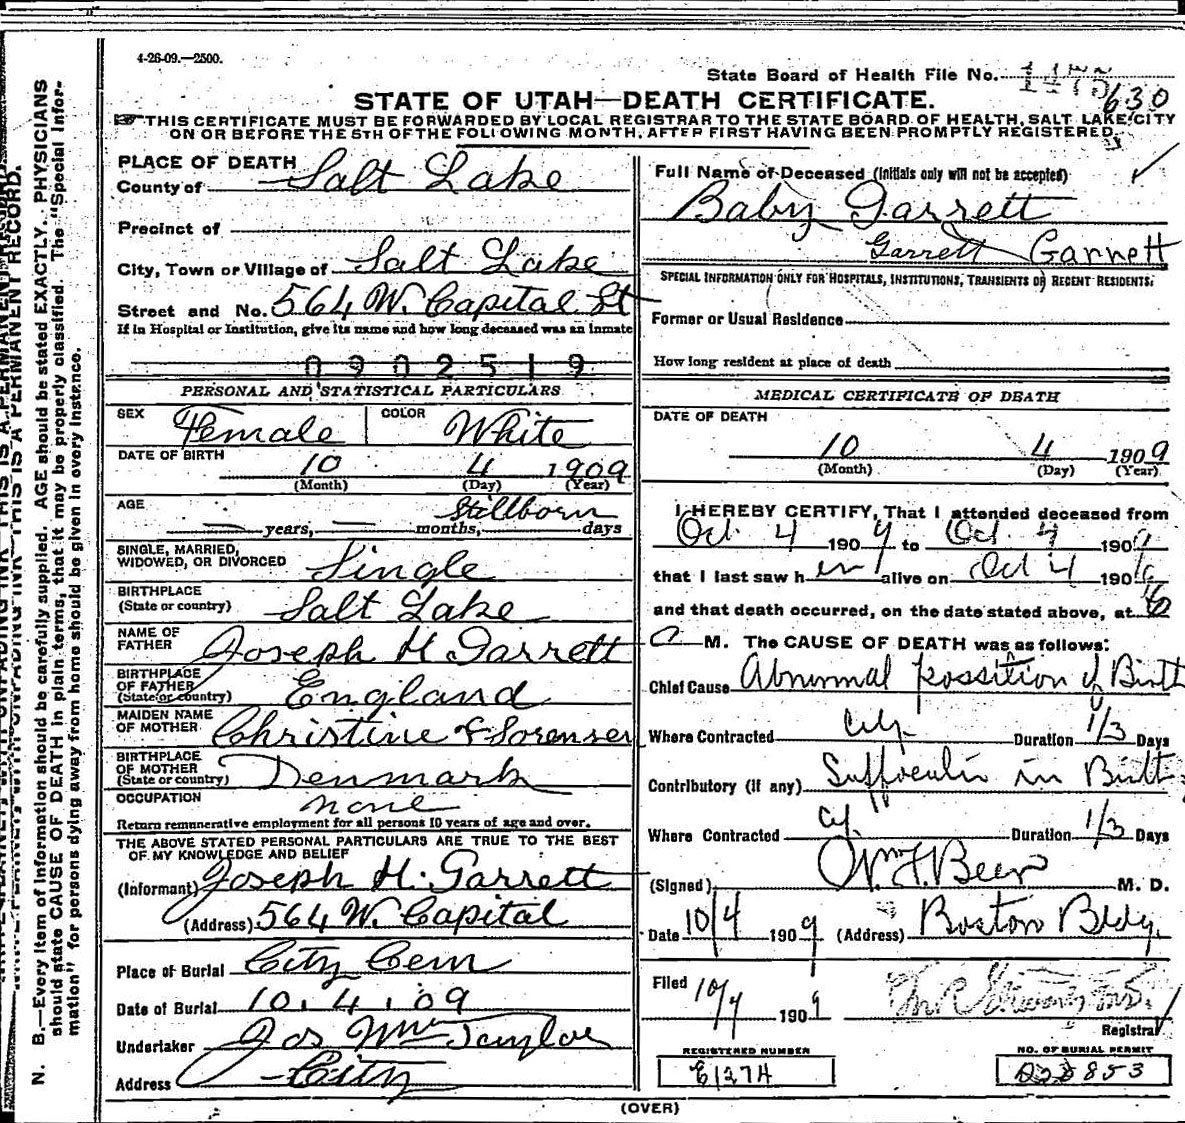 4-26-09.—2500.
State Board of Health File No. 1475
630
STATE OF UTAH—DEATH CERTIFICATE.
THIS CERTIFICATE MUST BE FORWARDED BY LOCAL REGISTRAR TO THE STATE BOARD OF HEALTH, SALT LAKE CITY
ON OR BEFORE THE 5TH OF THE FOLLOWING MONTH, AFTER FIRST HAVING BEEN PROMPTLY REGISTERED.
PLACE OF DEATH
County of Salt Lake
Precinct of
City, Town or Village of Salt Lake
Street and No. 564 W. Capital St
If in Hospital or Institution, give its name and how long deceased was an inmate
0902519
PERSONAL AND STATISTICAL PARTICULARS
SEX Female COLOR White
DATE OF BIRTH 10 4 1909
(Month) (Day) (Year)
AGE Stillborn
years, months, days
SINGLE, MARRIED,
WIDOWED, OR DIVORCED Single
BIRTHPLACE
(State or country) Salt Lake
NAME OF
FATHER Joseph H Garrett
BIRTHPLACE
OF FATHER
(State or country) England
MAIDEN NAME
OF MOTHER Christine F Sorensen
BIRTHPLACE
OF MOTHER
(State or country) Denmark
OCCUPATION none
Return remunerative employment for all persons 10 years of age and over.
THE ABOVE STATED PERSONAL PARTICULARS ARE TRUE TO THE BEST
OF MY KNOWLEDGE AND BELIEF
(Informant) Joseph H. Garrett
(Address) 564 W. Capital
Place of Burial City Cem
Date of Burial 10.4.09
Undertaker Jos Wm Taylor
Address City
Full Name of Deceased (Initials only will not be accepted)
Baby Garrett
Garrett Garnett
SPECIAL INFORMATION ONLY FOR HOSPITALS, INSTITUTIONS, TRANSIENTS OR RECENT RESIDENTS:
Former or Usual Residence
How long resident at place of death
MEDICAL CERTIFICATE OF DEATH
DATE OF DEATH
10 4 1909
(Month) (Day) (Year)
I HEREBY CERTIFY, That I attended deceased from
Oct. 4 1909 to Oct. 4 1909
that I last saw her alive on Oct 4 190
and that death occurred, on the date stated above, at
M. The CAUSE OF DEATH was as follows:
Chief Cause Abnormal possition of Birth
Where Contracted City Duration 1/3 Days
Contributory (if any) Suffocatin in Birth
Where Contracted Cy. Duration 1/3 Days
(Signed) Wm F. Beer M. D.
Date 10/4 1909 (Address) Boston Bldg.
Filed 10/4 1909
Registrar
REGISTERED NUMBER
E1274
NO. OF BURIAL PERMIT
853
(OVER)
N. B.—Every item of information should be carefully supplied. AGE should be stated EXACTLY. PHYSICIANS
should state CAUSE OF DEATH in plain terms, that it may be properly classified. The "Special Infor-
mation" for persons dying away from home should be given in every instance.
THIS IS A PERMANENT RECORD.